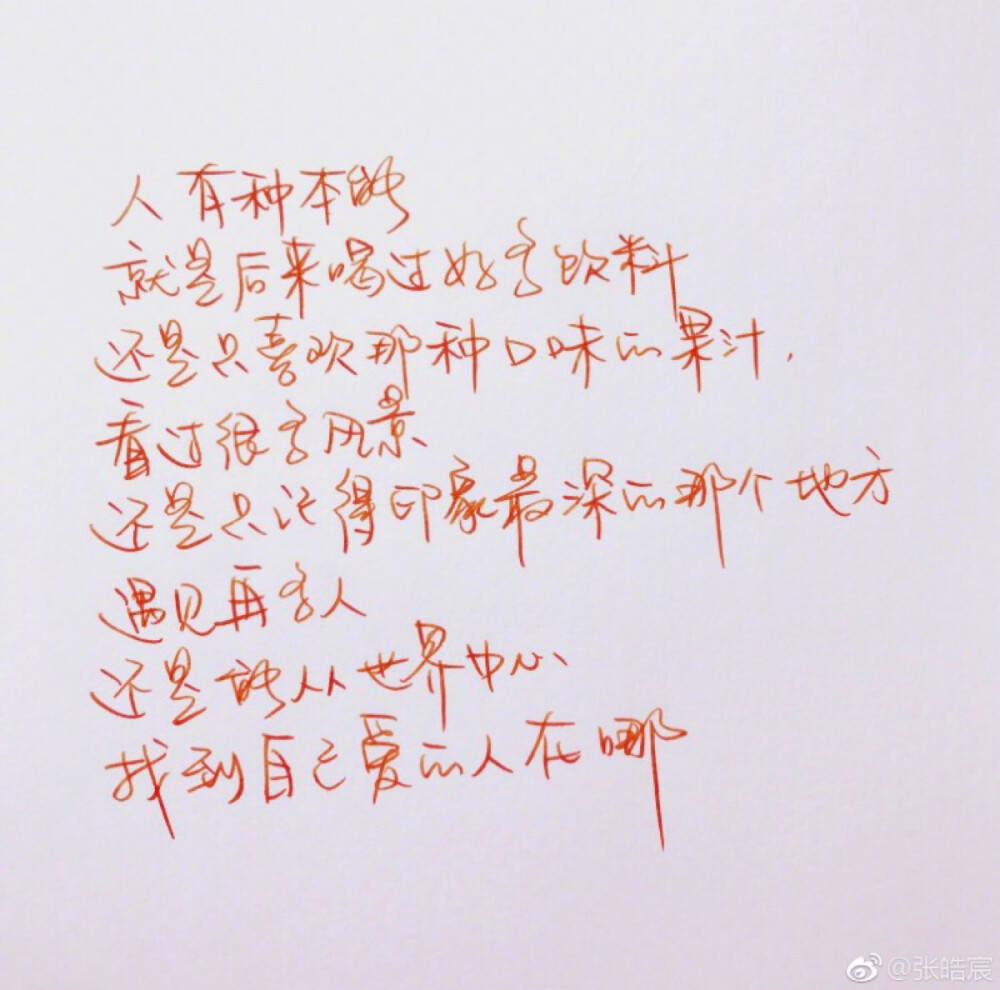 人有种本能
就是后来喝过好多饮料
还是只喜欢那种口味的果汁.
看过很多风景
还是只记得印象最深的那个地方
遇见再多人
还是能从世界中心
找到自己爱的人在哪
@张皓宸